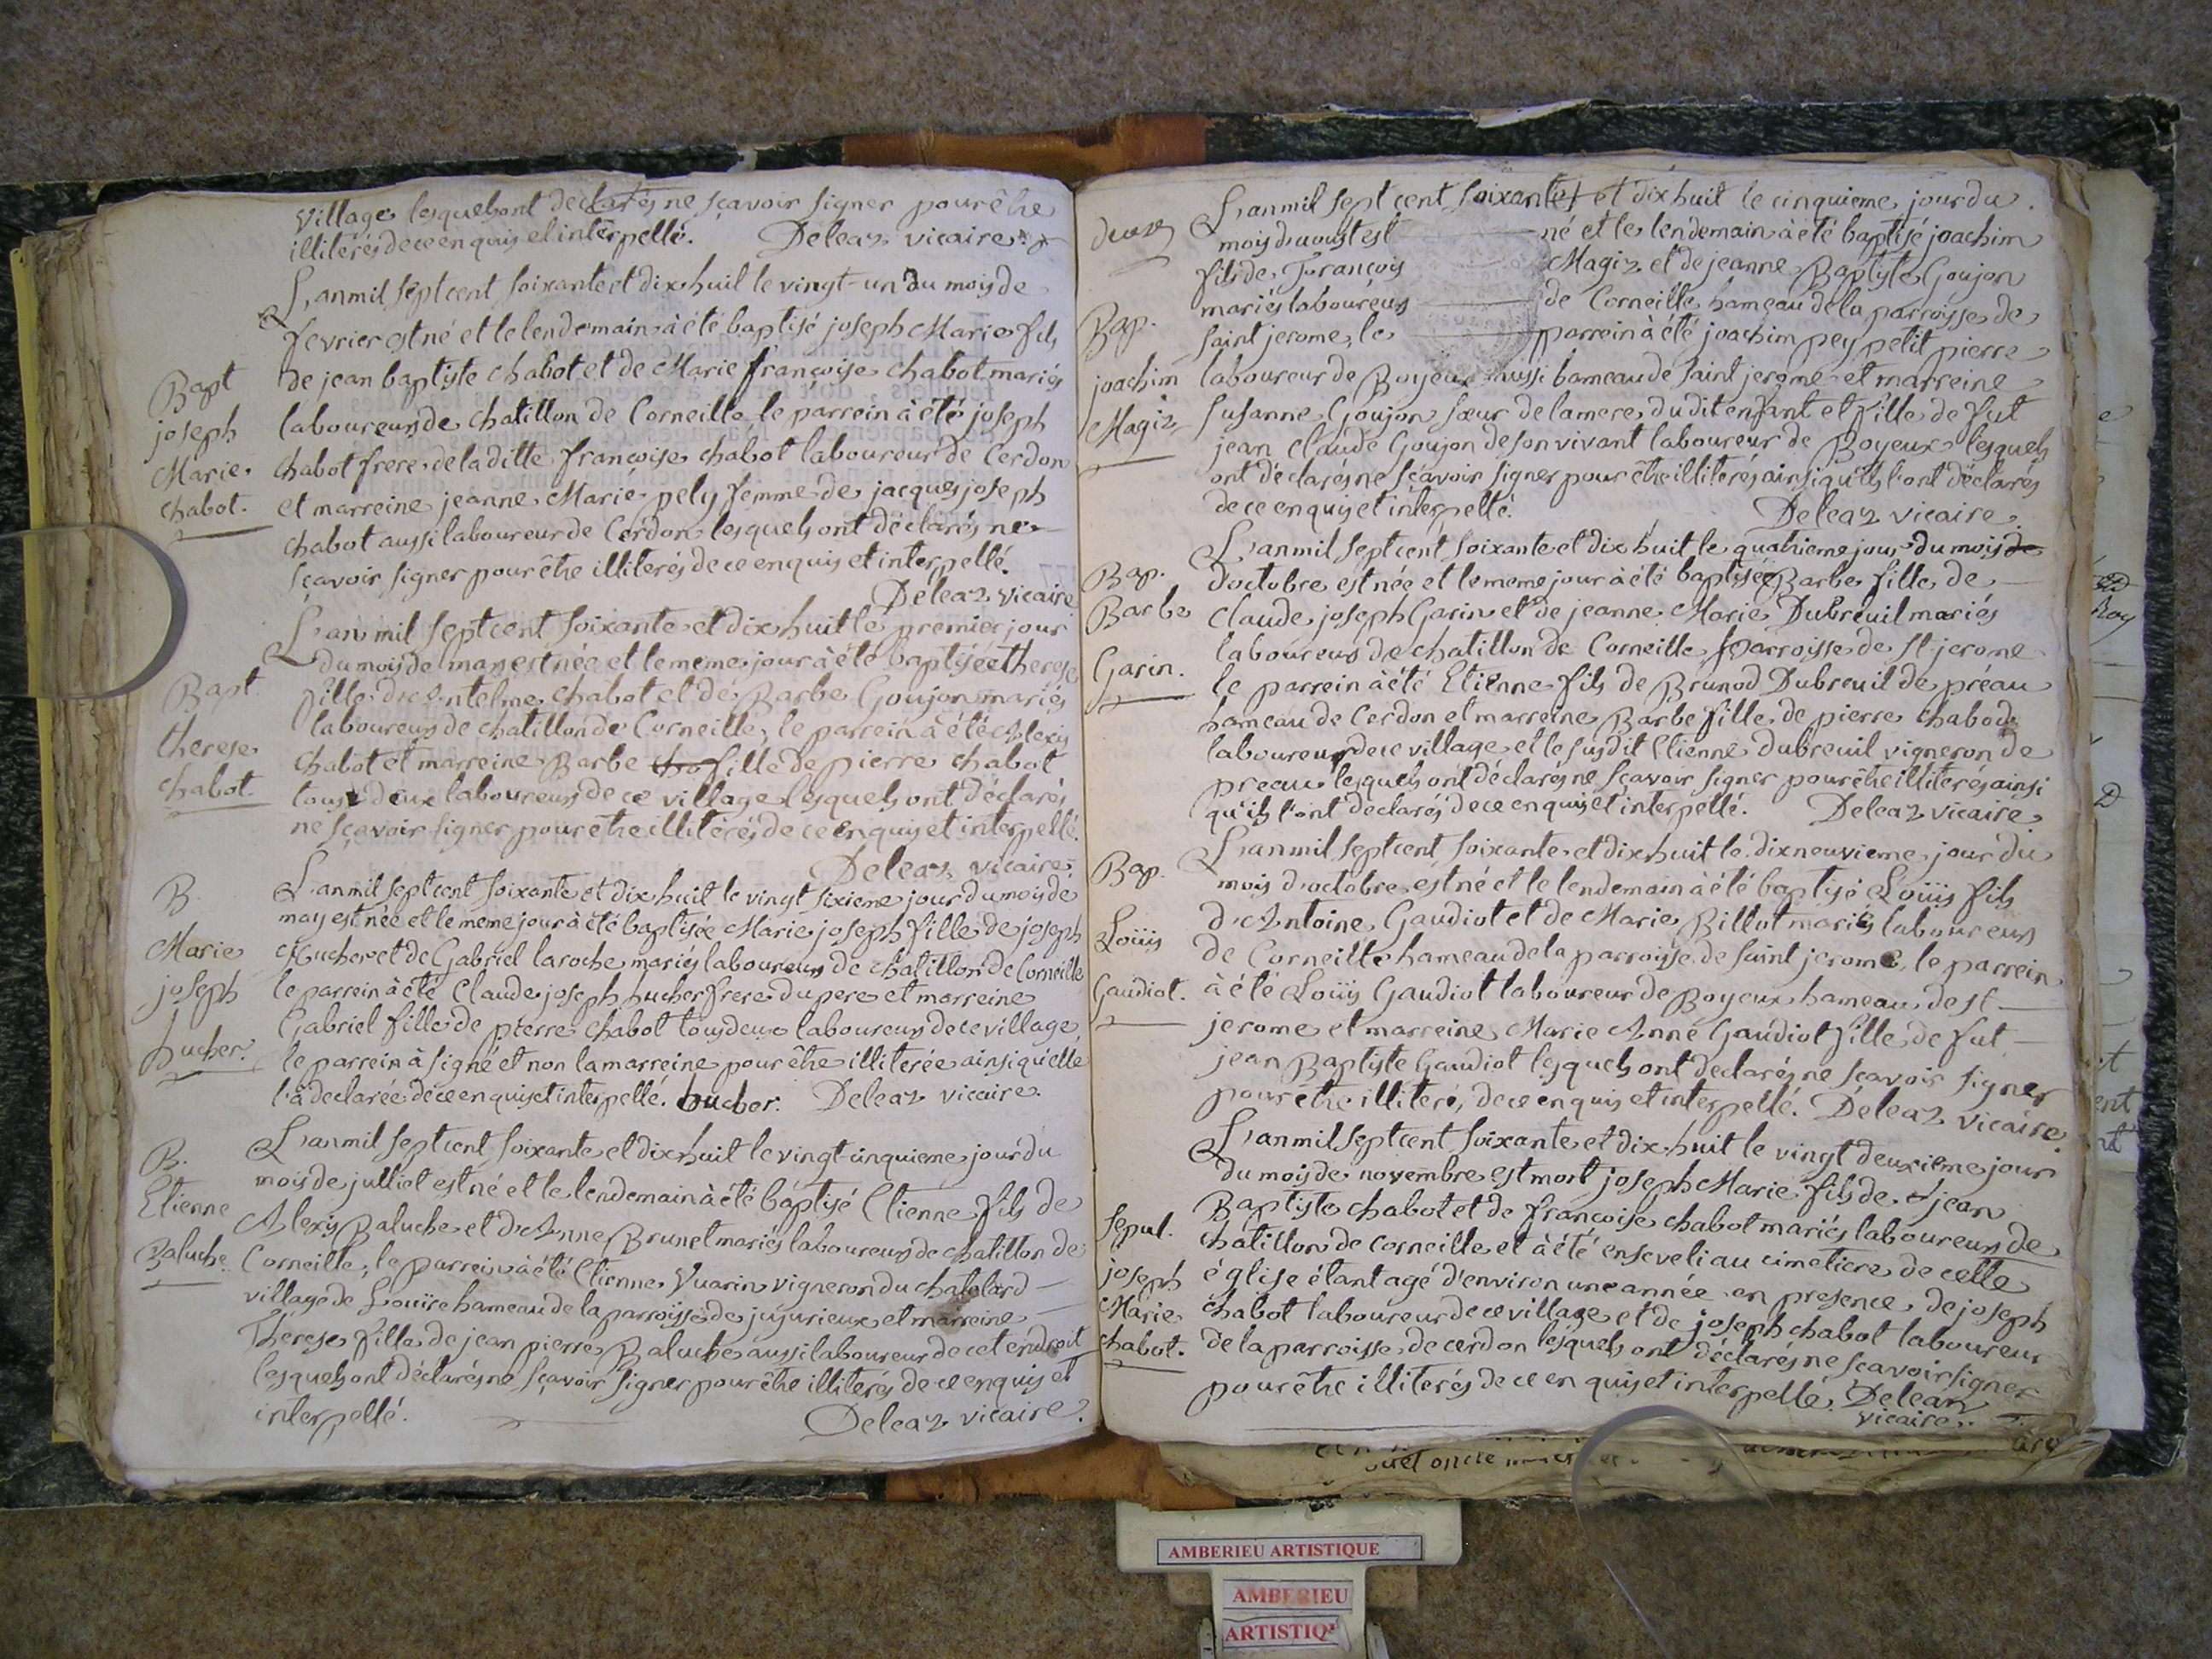 village lesquels ont déclarés ne sçavoir signer pour être
illiterés de ce enquis et interpellé. Deleaz vicaire
L'an mil sept cent soixante et dix huit le vingt-un du mois de
fevrier est né et le lendemain à été baptisé joseph Marie fils
Bapt
joseph
Marie
chabot.
de jean baptiste chabot et de Marie françoise chabot mariés
laboureurs de chatillon de Corneille, le parrein à été joseph
chabot frere de la ditte françoise chabot laboureur de Cerdon
et marreine jeanne Marie pely femme de jacques joseph
chabot aussi laboureur de Cerdon lesquels ont déclarés ne
sçavoir signer pour être illiterés de ce enquis et interpellé.
Deleaz vicaire
L'an mil sept cent soixante et dix huit le premier jour
du mois de mars est née et le meme jour à été baptisée therese
Bapt.
therese
chabot.
fille d'Antelme chabot et de Barbe Goujon mariés
laboureurs de chatillon de Corneille, le parrein à été Alexis
chabot et marreine Barbe cha fille de pierre chabot
tous deux laboureurs de ce village lesquels ont déclarés
ne sçavoir signer pour être illiterés de ce enquis et interpellé.
Deleaz vicaire.
B.
Marie
joseph
bucher.
L'an mil sept cent soixante et dix huit le vingt sixieme jour du mois de
may est née et le meme jour à été baptisée Marie joseph fille de joseph
Bucher et de Gabriel laroche mariés laboureurs de chatillon de Corneille
le parrein à été Claude joseph bucher frere du pere et marreine
Gabriel fille de pierre chabot tous deux laboureurs de ce village
le parrein à signé et non la marreine pour être illiterée ainsi qu'elle
l'a declarée de ce enquis et interpellé. bucher. Deleaz vicaire.
B.
Etienne
Baluche.
L'an mil sept cent soixante et dix huit le vingt-cinquieme jour du
mois de julliet est né et le lendemain à été baptisé Etienne fils de
Alexis Baluche et d'Anne Brunet mariés laboureurs de chatillon de
Corneille, le parrein à été Etienne Vuarin vigneron du chatelard
village de Louise hameau de la parroisse de jujurieux et marreine
Therese fille de jean pierre Baluche aussi laboureur de cet endroit
lesquels ont déclarés ne sçavoir signer pour être illiterés de ce enquis et
interpellé. Deleaz vicaire.
deuze
Bap.
joachim
Magiz
L'an mil sept cent soixante et dix huit le cinquieme jour du
mois d'aoust est né et le lendemain à été baptisé joachim
fils de François Magiz et de jeanne Baptiste Goujon
mariés laboureurs de Corneille hameau de la parroisse de
saint jerome, le parrein à été joachim pey petit pierre
laboureur de Boyeux aussi hameau de saint jerome et marreine
susanne Goujon sœur de la mere du dit enfant et fille de fut
jean claude Goujon de son vivant laboureur de Boyeux lesquels
ont déclarés ne sçavoir signer pour être illiterés ainsi qu'ils l'ont déclarés
de ce enquis et interpellé. Deleaz vicaire.
Bap.
Barbe
Garin.
L'an mil sept cent soixante et dix huit le quatrieme jour du mois de
d'octobre est née et le meme jour à été baptisée Barbe fille de
claude joseph Garin et de jeanne Marie Dubreuil mariés
laboureurs de chatillon de Corneille parroisse de st jerome
le parrein à été Etienne fils de Brunod Dubreuil de préau
hameau de Cerdon et marreine Barbe fille de pierre chabod
laboureur de ce village et le susdit Etienne dubreuil vigneron de
preau lesquels ont déclarés ne sçavoir signer pour être illiterés ainsi
qu'ils l'ont déclarés de ce enquis et interpellé. Deleaz vicaire.
Bap.
Loüis
Gaudiot.
L'an mil sept cent soixante et dix huit le dix neuvieme jour du
mois d'octobre est né et le lendemain à été baptisé Loüis fils
d'Antoine Gaudiot et de Marie Billot mariés laboureurs
de Corneille hameau de la parroisse de saint jerome, le parrein
à été Loüis Gaudiot laboureur de Boyeux hameau de st
jerome et marreine Marie Anne Gaudiot fille de fut
jean Baptiste Gaudiot lesquels ont declarés ne sçavoir signer
pour être illiteré, de ce enquis et interpellé. Deleaz vicaire.
sepul.
joseph
Marie
chabot.
L'an mil sept cent soixante et dix huit le vingt deuxieme jour
du mois de novembre est mort joseph Marie fils de jean
Baptiste chabot et de françoise chabot mariés laboureurs de
chatillon de corneille et à été enseveli au cimetiere de cette
église étant agé d'environ une année en presence de joseph
chabot laboureur de ce village et de joseph chabot laboureur
de la parroisse de cerdon lesquels ont déclarés ne sçavoir signer
pour être illiterés de ce enquis et interpellé. Deleaz
vicaire.
AMBERIEU ARTISTIQUE
AMBERIEU
ARTISTIQ